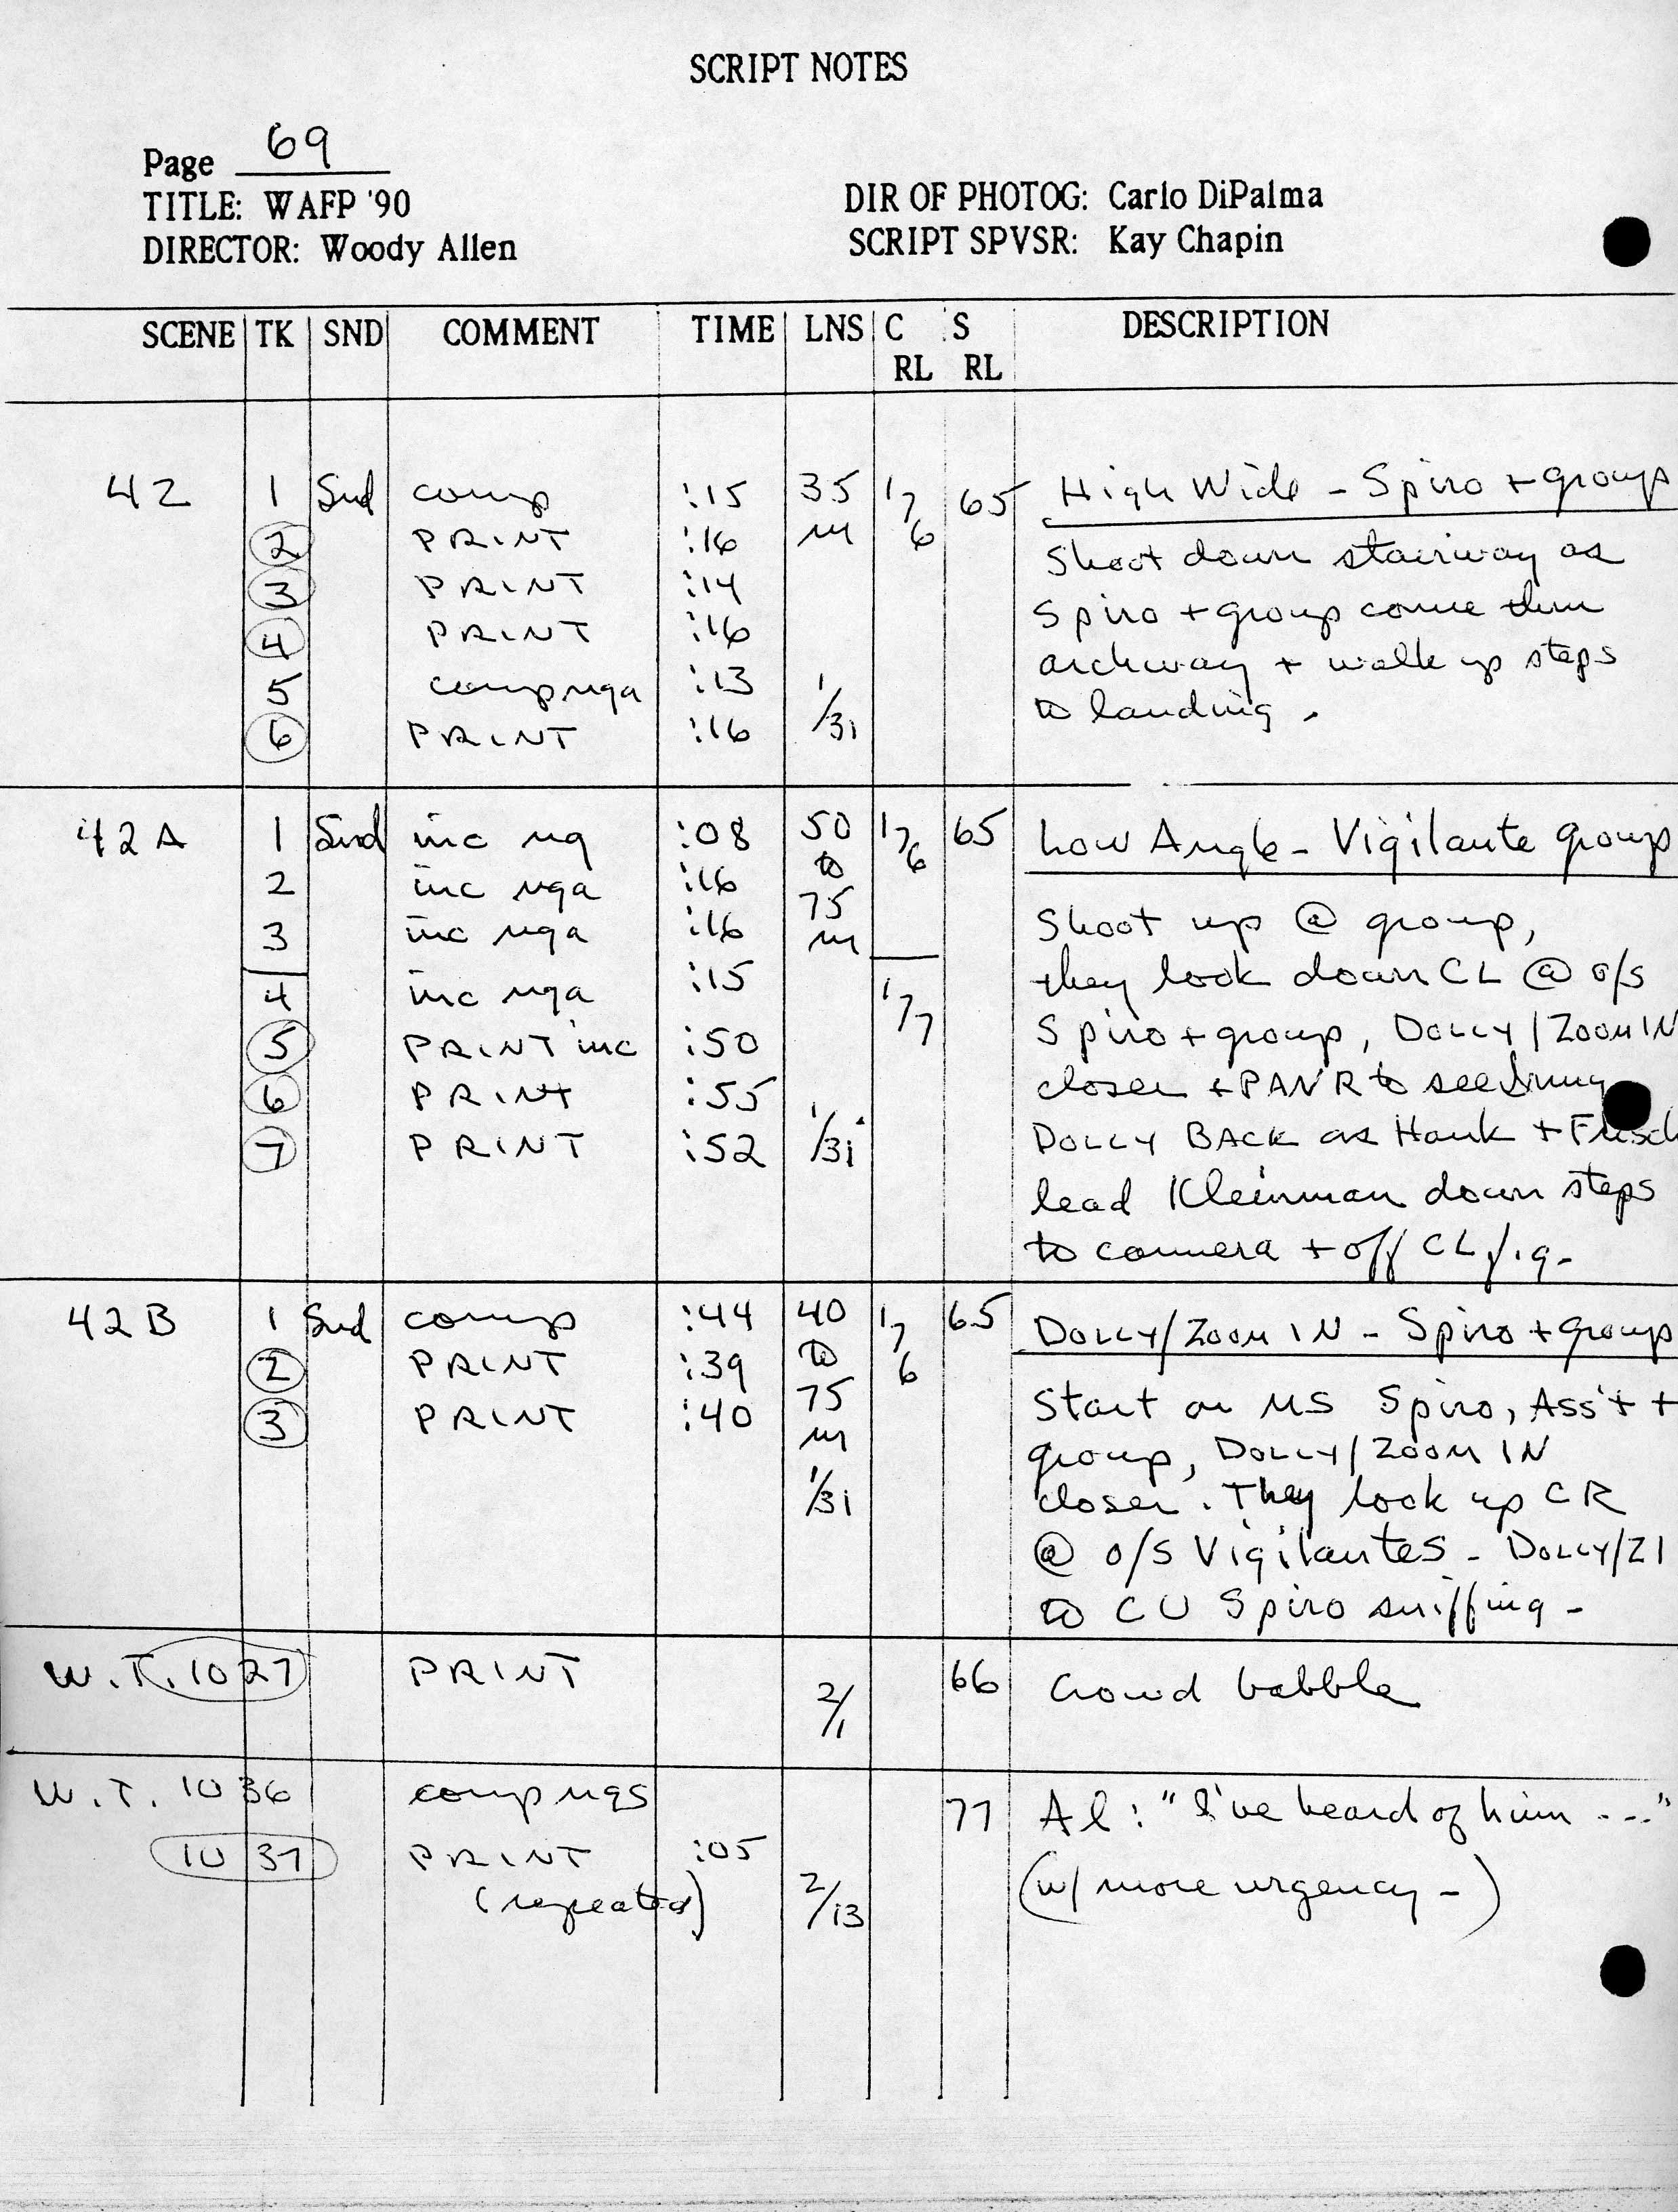 SCRIPT NOTES
Page 69
TITLE: WAFP '90
DIRECTOR: Woody Allen
DIR OF PHOTOG: Carlo DiPalma
SCRIPT SPVSR: Kay Chapin
SCENE TK SND COMMENT TIME LNS C RL S RL DESCRIPTION
42 1 Snd comp :15 35 17 65 High Wide - Spiro + group
2 PRINT :16 m 6 Shoot down stairway as
3 PRINT :14 Spiro + group come thru
4 PRINT :16 archway + walk up steps
5 comp nga :13 1/31 to landing.
6 PRINT :16
42A 1 Snd inc ng :08 50 17 65 Low Angle - Vigilante group
2 inc nga :16 to 6
3 inc nga :16 75 m Shoot up @ group,
4 inc nga :15 17 they look down CL @ o/s
5 PRINT inc :50 7 Spiro + group, DOLLY/ZOOM IN
6 PRINT :55 closer + PAN R to see
7 PRINT :52 1/31 DOLLY BACK as Hank + Frisch
lead Kleinman down steps
to camera + off CL f.g.
42B 1 Snd comp :44 40 17 65 DOLLY/ZOOM IN - Spiro + group
2 PRINT :39 to 6
3 PRINT :40 75 m Start on MS Spiro, Ass't +
group, DOLLY/ZOOM IN
1/31 closer. They look up CR
@ o/s Vigilantes - DOLLY/ZI
to CU Spiro sniffing -
W.T. 1027 PRINT 2/1 66 Crowd babble
W.T. 1036 comp ngs 77 Al: "I've heard of him ..."
1037 PRINT :05 (w/ more urgency -)
(repeated) 2/13